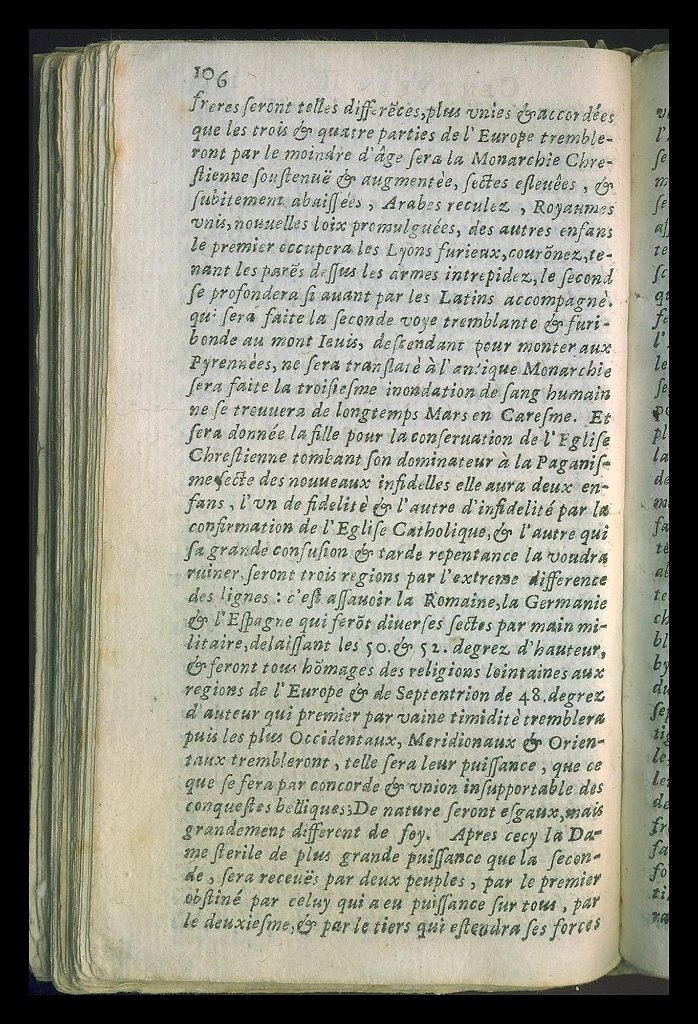 106
freres ſeront telles differẽces, plus vnies & accordées
que les trois & quatre parties de l'Europe tremble-
ront par le moindre d'âge ſera la Monarchie Chre-
ſtienne ſouſtenuë & augmentèe, ſectes eſleuêes, &
ſubitement abaiſſées, Arabes reculez, Royaumes
vnis, nouuelles loix promulguées, des autres enfans
le premier occupera les Lyons furieux, courõnez, te-
nant les parẽs deſſus les armes intrepidez, le ſecond
ſe profondera ſi auant par les Latins accompagnè.
qui ſera faite la ſeconde voye tremblante & furi-
bonde au mont Iouis, deſcendant pour monter aux
Pyrennèes, ne ſera tranſlatè à l'antique Monarchie
ſera faite la troiſieſme inondation de ſang humain
ne ſe trouuera de longtemps Mars en Careſme. Et
ſera donnée la fille pour la conſeruation de l'Egliſe
Chreſtienne tombant ſon dominateur à la Paganiſ-
me ſecte des nouueaux infidelles elle aura deux en-
fans, l'vn de fidelitè & l'autre d'infidelité par la
confirmation de l'Egliſe Catholique, & l'autre qui
ſa grande confuſion & tarde repentance la voudra
ruiner, ſeront trois regions par l'extreme difference
des lignes : c'eſt aſſauoir la Romaine, la Germanie
& l'Eſpagne qui ferõt diuerſes ſectes par main mi-
litaire, delaiſſant les 50. & 52. degrez d'hauteur,
& feront tous hõmages des religions lointaines aux
regions de l'Europe & de Septentrion de 48. degrez
d'auteur qui premier par vaine timiditè tremblera
puis les plus Occidentaux, Meridionaux & Orien-
taux trembleront, telle ſera leur puiſſance, que ce
que ſe fera par concorde & vnion inſupportable des
conqueſtes belliques; De nature ſeront eſgaux, mais
grandement different de foy. Apres cecy la Da-
me ſterile de plus grande puiſſance que la ſecon-
de, ſera receuës par deux peuples, par le premier
obſtiné par celuy qui a eu puiſſance ſur tous, par
le deuxieſme, & par le tiers qui eſtendra ſes forces